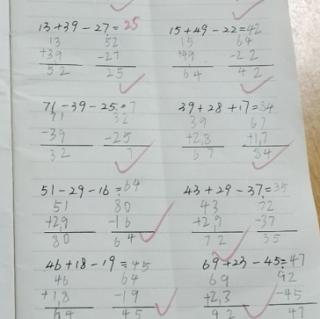 13+39-27=25 15+49-22=42
13 52 15 64
+39 -27 +49 -22
52 25 64 42
71-39-25=7 39+28+17=84
71 32 39 67
-39 -25 +2,8 +1,7
32 7 67 84
51-29-16=64 43+29-37=35
51 80 43 72
+2,9 -16 +2,9 -37
80 64 72 35
46+18-19=45 69+23-45=47
46 64 69 92
+1,8 -19 +2,3 -45
64 45 92 47